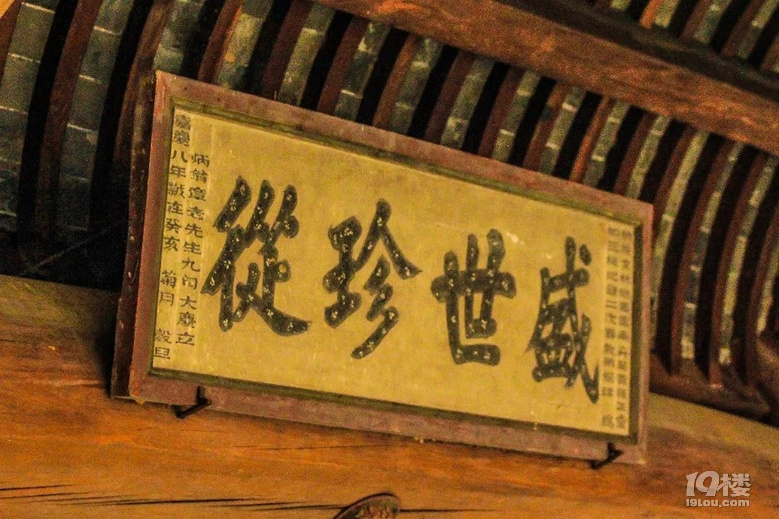 加三級紀錄二次
盛世珍從
炳翁章老先生九旬大慶立
嘉慶八年歲在癸亥 菊月 穀旦
19楼
19lou.com